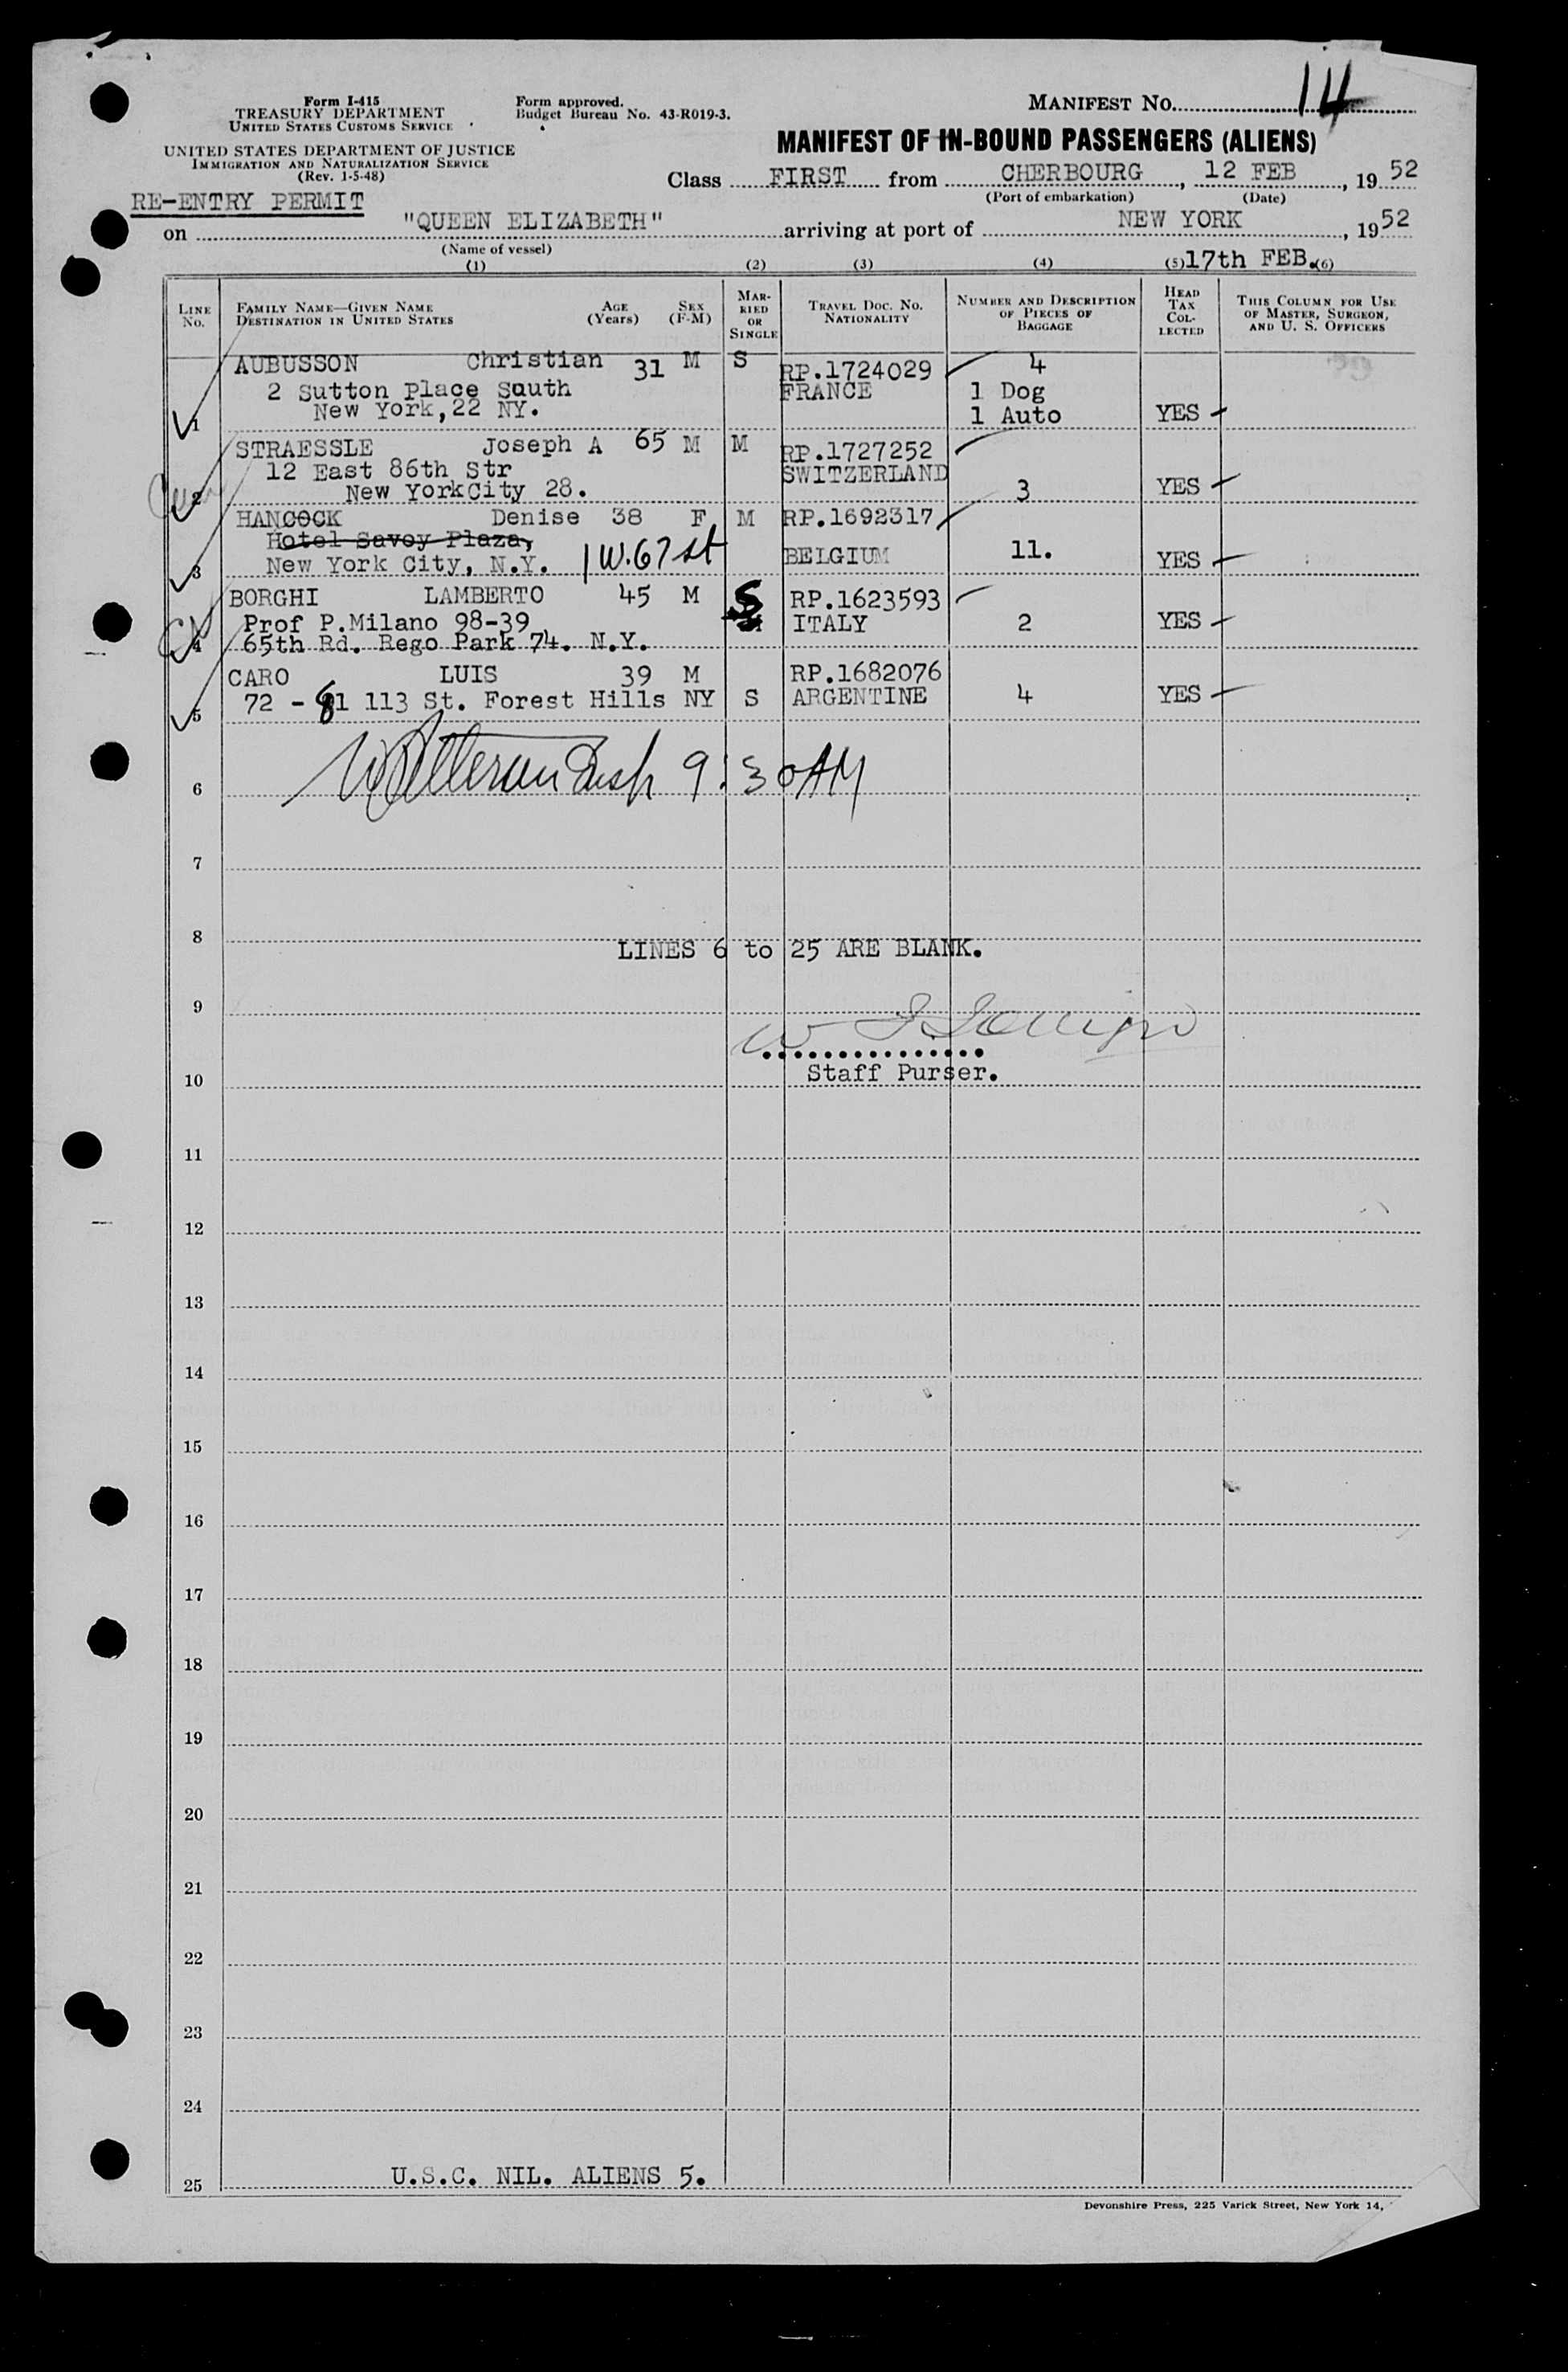 Form I-415
TREASURY DEPARTMENT
UNITED STATES CUSTOMS SERVICE
Form approved.
Budget Bureau No. 43-R019-3.
MANIFEST NO. 14
UNITED STATES DEPARTMENT OF JUSTICE
IMMIGRATION AND NATURALIZATION SERVICE
(Rev. 1-5-48)
MANIFEST OF IN-BOUND PASSENGERS (ALIENS)
Class FIRST from CHERBOURG, 12 FEB, 1952
(Port of embarkation) (Date)
RE-ENTRY PERMIT
on "QUEEN ELIZABETH" arriving at port of NEW YORK, 1952
(Name of vessel)
(1) (2) (3) (4) (5) 17th FEB. (6)
LINE No.
FAMILY NAME—GIVEN NAME
DESTINATION IN UNITED STATES
AGE (Years)
SEX (F-M)
MARRIED OR SINGLE
TRAVEL DOC. NO. NATIONALITY
NUMBER AND DESCRIPTION OF PIECES OF BAGGAGE
HEAD TAX COLLECTED
THIS COLUMN FOR USE OF MASTER, SURGEON, AND U. S. OFFICERS
AUBUSSON Christian 31 M S RP.1724029 4
2 Sutton Place South FRANCE 1 Dog
1 New York,22 NY. 1 Auto YES
STRAESSLE Joseph A 65 M M RP.1727252
12 East 86th Str SWITZERLAND
2 New YorkCity 28. 3 YES
HANCOCK Denise 38 F M RP.1692317
Hotel Savoy Plaza,
3 New York City, N.Y. 1 W. 67 st BELGIUM 11. YES
BORGHI LAMBERTO 45 M S RP.1623593
Prof P.Milano 98-39 ITALY 2 YES
4 65th Rd. Rego Park 74. N.Y.
CARO LUIS 39 M RP.1682076
5 72 - 81 113 St. Forest Hills NY S ARGENTINE 4 YES
6 9:30 AM
7
8
LINES 6 to 25 ARE BLANK.
9
Staff Purser.
10
11
12
13
14
15
16
17
18
19
20
21
22
23
24
25 U.S.C. NIL. ALIENS 5.
Devonshire Press, 225 Varick Street, New York 14,